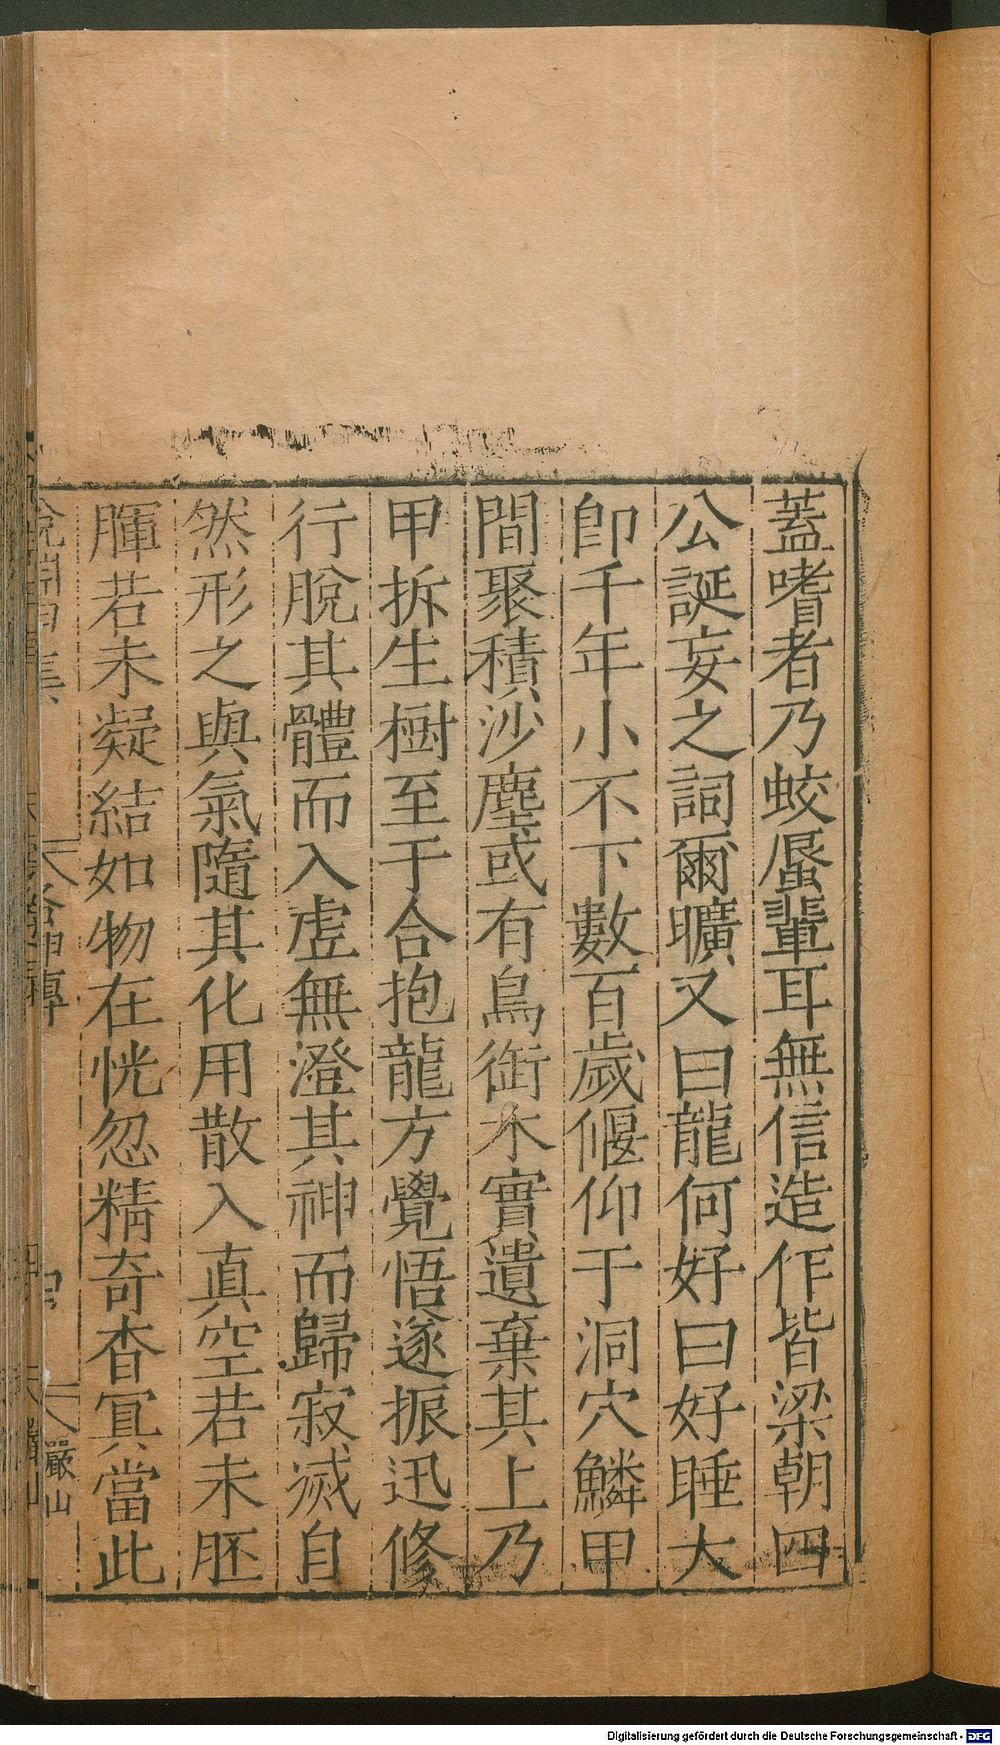 蓋嗜者乃蛟蜃輩耳無信造作皆梁朝四
公誕妄之詞爾曠又曰龍何好曰好睡大
卽千年小不下數百歲偃仰于洞穴鱗甲
間聚積沙塵或有鳥銜木實遺棄其上乃
甲拆生樹至于合抱龍方覺悟遂振迅修
行脫其體而入虛無澄其神而歸寂滅自
然形之與氣隨其化用散入真空若未胚
腪若未凝結如物在恍忽精奇杳冥當此
嚴山
Digitalisierung gefördert durch die Deutsche Forschungsgemeinschaft - DFG